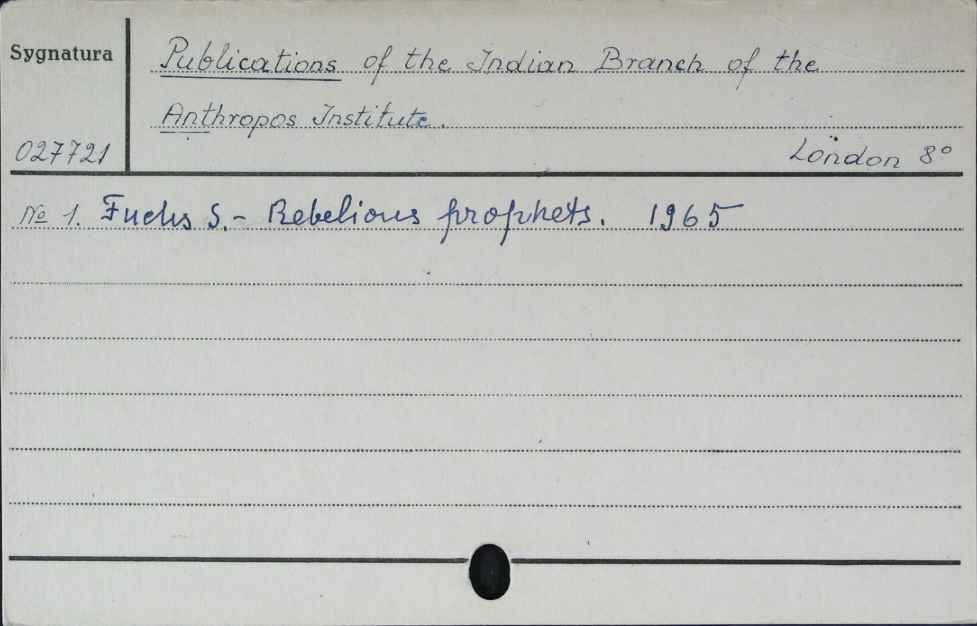 Sygnatura
Publications of the Indian Branch of the
Anthropos Institute.
027721
London 8°
No 1. Fuchs S. - Rebelious prophets. 1965